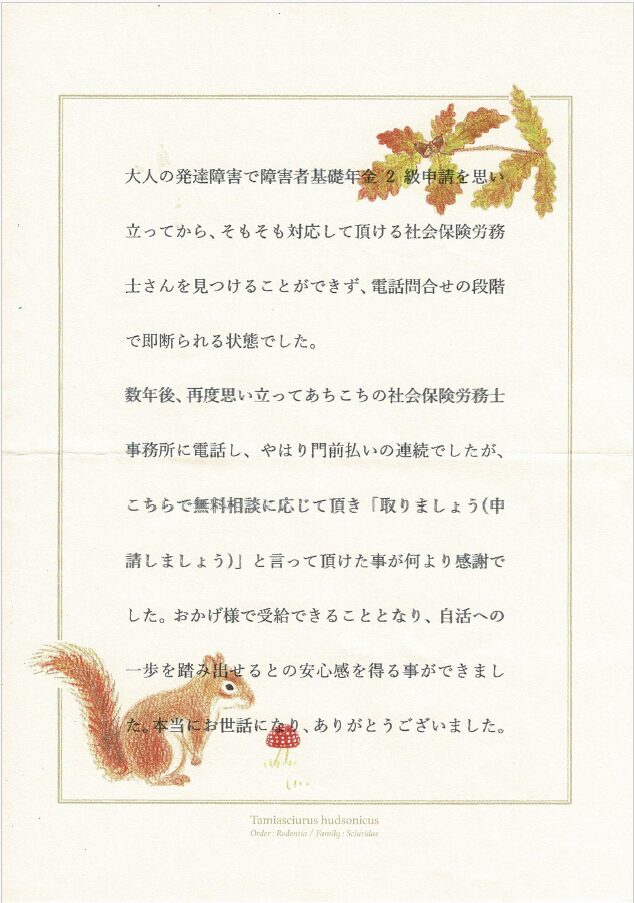 大人の発達障害で障害者基礎年金 2 級申請を思い
立ってから、そもそも対応して頂ける社会保険労務
士さんを見つけることができず、電話問合せの段階
で即断られる状態でした。
数年後、再度思い立ってあちこちの社会保険労務士
事務所に電話し、やはり門前払いの連続でしたが、
こちらで無料相談に応じて頂き「取りましょう(申
請しましょう)」と言って頂けた事が何より感謝で
した。おかげ様で受給できることとなり、自活への
一歩を踏み出せるとの安心感を得る事ができまし
た。本当にお世話になり、ありがとうございました。
Tamiasciurus hudsonicus
Order : Rodentia / Family : Sciuridae